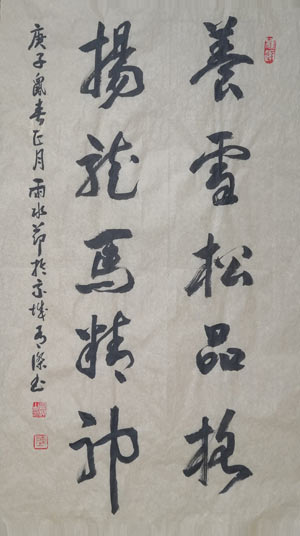 養雪松品格
揚龍馬精神
庚子鼠春正月雨水節於京城